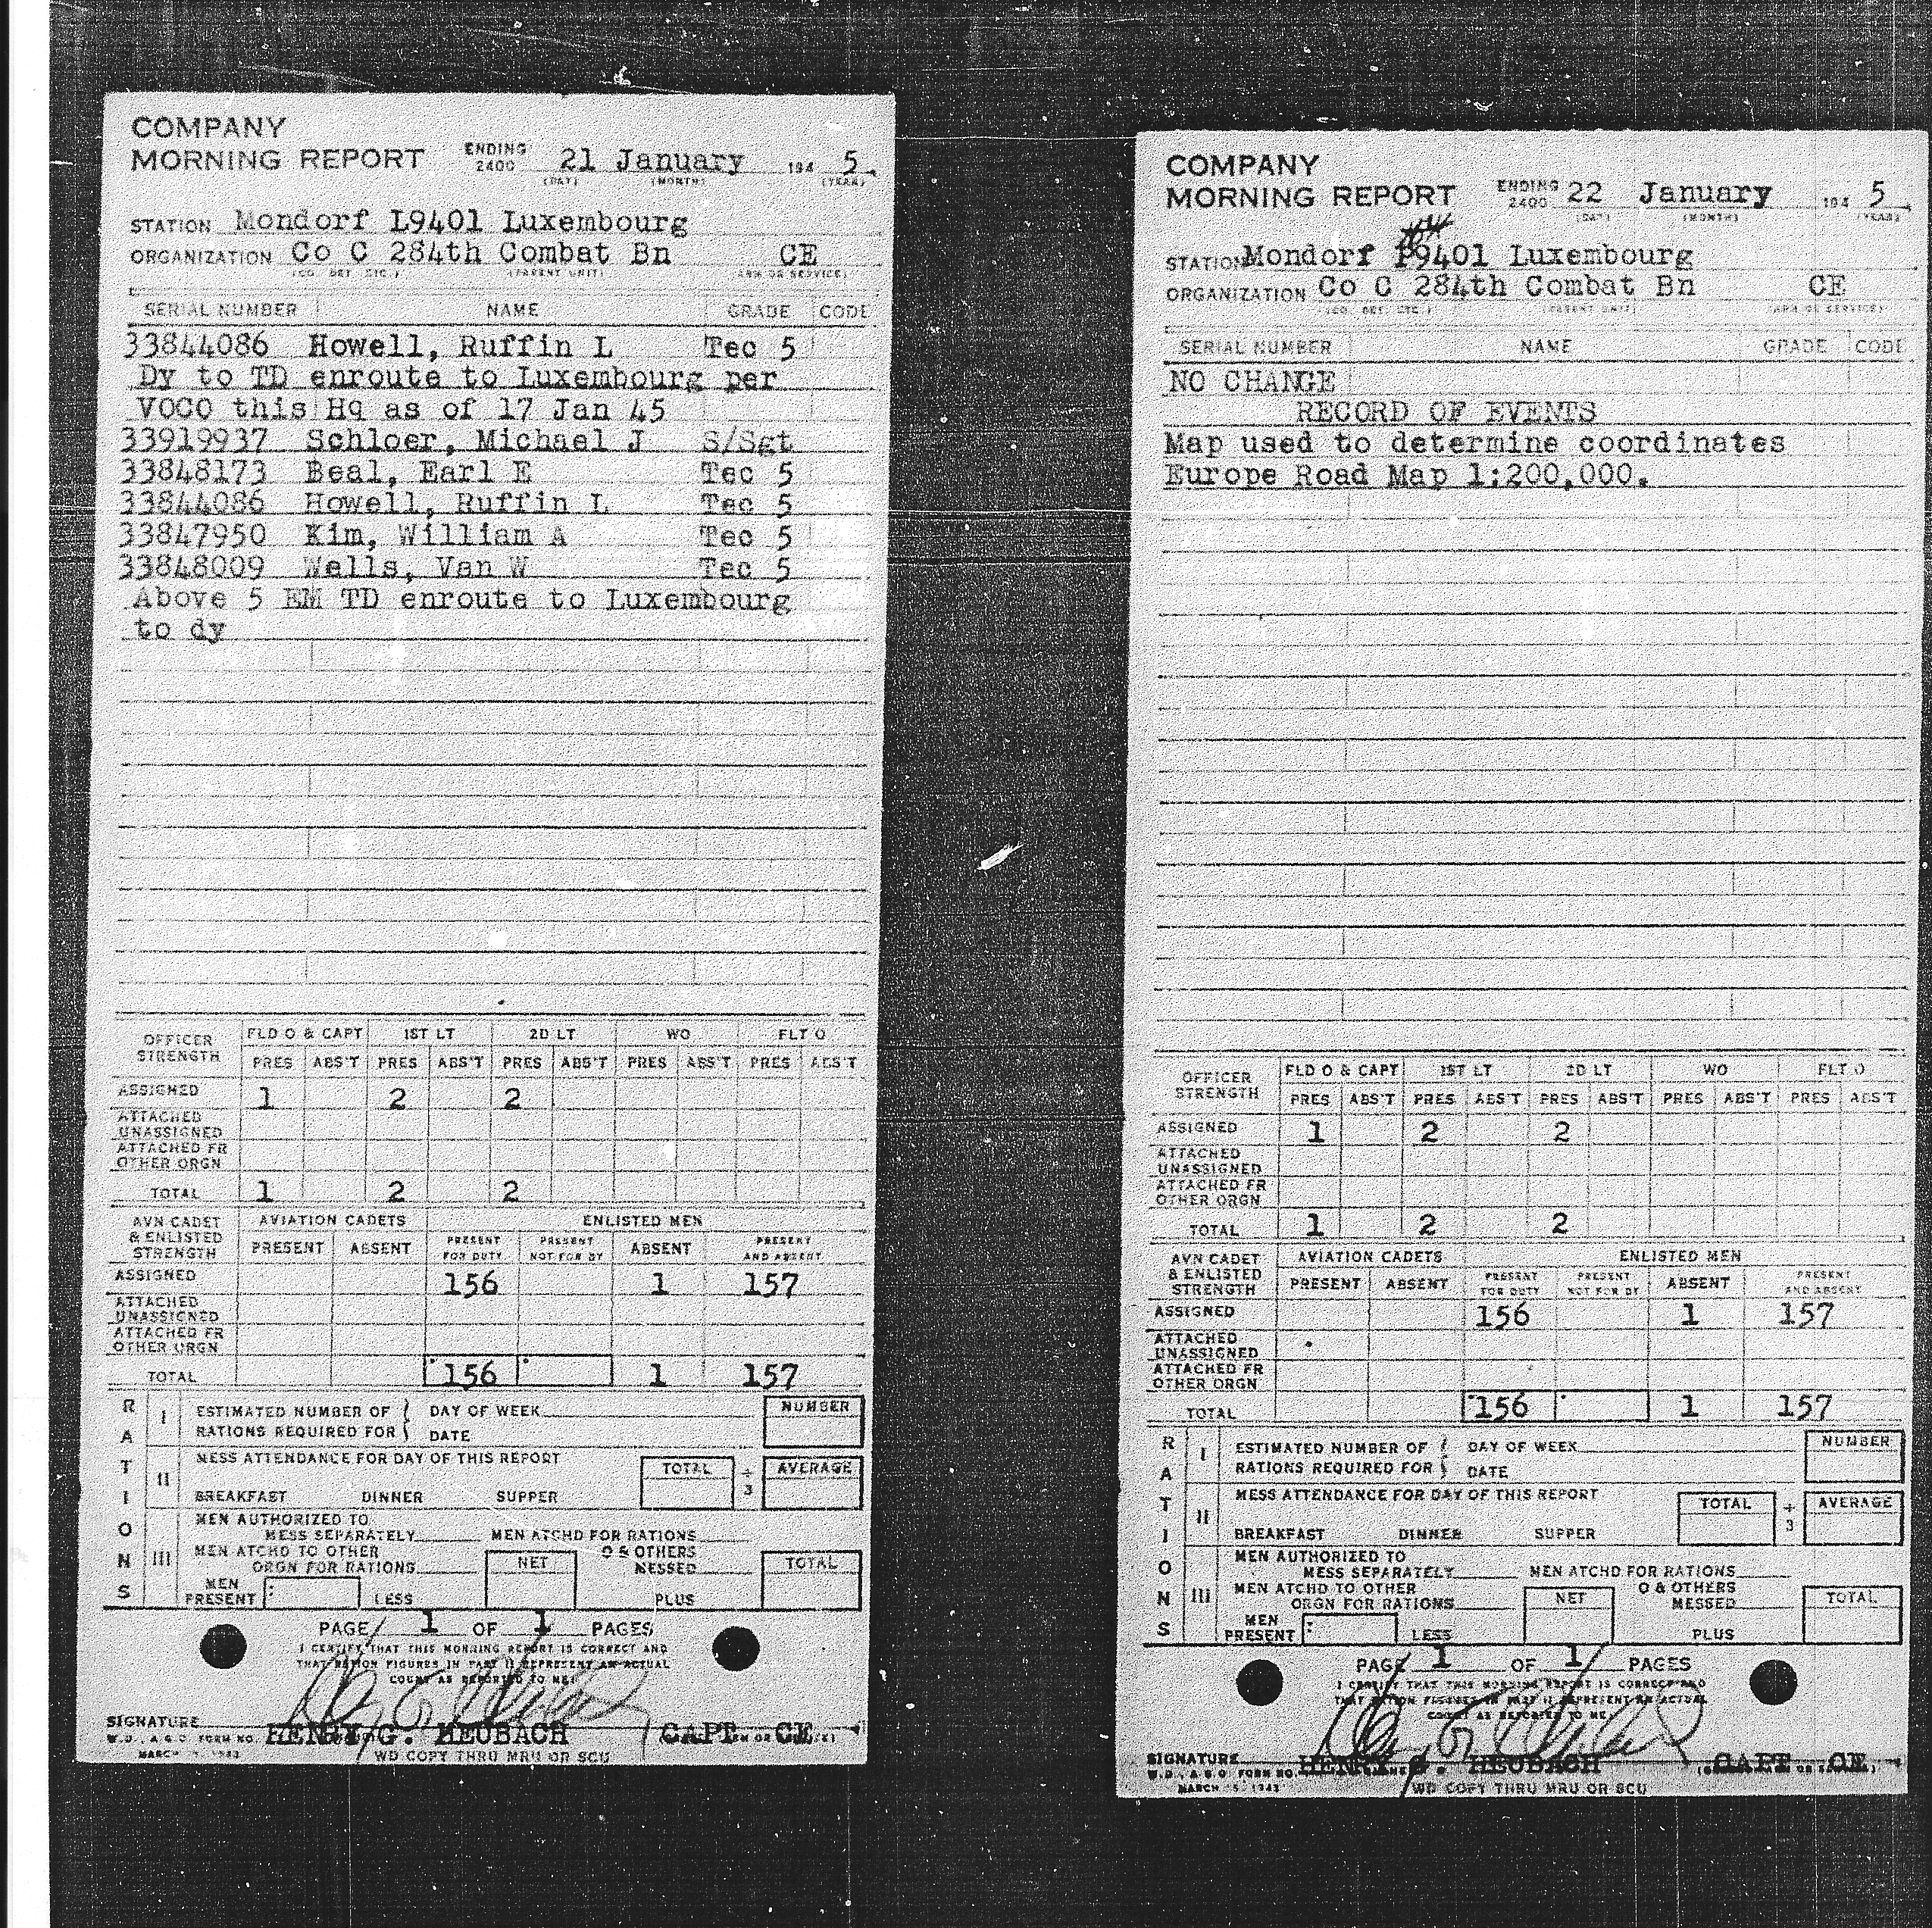 COMPANY
MORNING REPORT ENDING 2400 21 January 194 5
(DAY) (MONTH) (YEAR)
STATION Mondorf L9401 Luxembourg
ORGANIZATION Co C 284th Combat Bn CE
(CO. DET. ETC.) (PARENT UNIT) (ARM OR SERVICE)
SERIAL NUMBER NAME GRADE CODE
33844086 Howell, Ruffin L Tec 5
Dy to TD enroute to Luxembourg per
VOCO this Hq as of 17 Jan 45
33919937 Schloer, Michael J S/Sgt
33848173 Beal, Earl E Tec 5
33844086 Howell, Ruffin L Tec 5
33847950 Kim, William A Tec 5
33848009 Wells, Van W Tec 5
Above 5 EM TD enroute to Luxembourg
to dy
OFFICER STRENGTH FLD O & CAPT 1ST LT 2D LT WO FLT O
PRES ABS'T PRES ABS'T PRES ABS'T PRES ABS'T PRES ABS'T
ASSIGNED 1 2 2
ATTACHED UNASSIGNED
ATTACHED FR OTHER ORGN
TOTAL 1 2 2
AVN CADET & ENLISTED STRENGTH AVIATION CADETS ENLISTED MEN
PRESENT ABSENT PRESENT FOR DUTY PRESENT NOT FOR DY ABSENT PRESENT AND ABSENT
ASSIGNED 156 1 157
ATTACHED UNASSIGNED
ATTACHED FR OTHER ORGN
TOTAL 156 1 157
RATIONS
I ESTIMATED NUMBER OF DAY OF WEEK NUMBER
RATIONS REQUIRED FOR DATE
II MESS ATTENDANCE FOR DAY OF THIS REPORT TOTAL ÷ 3 AVERAGE
BREAKFAST DINNER SUPPER
III MEN AUTHORIZED TO
MESS SEPARATELY MEN ATCHD FOR RATIONS
MEN ATCHD TO OTHER O & OTHERS
ORGN FOR RATIONS NET MESSED TOTAL
MEN PRESENT LESS PLUS
PAGE 1 OF 1 PAGES
I CERTIFY THAT THIS MORNING REPORT IS CORRECT AND
THAT RATION FIGURES IN PART II REPRESENT AN ACTUAL
COUNT AS REPORTED TO ME:
SIGNATURE HENRY G. HEUBACH CAPT CE
W.D., A.G.O. FORM NO.
MARCH 1943
WD COPY THRU MRU OR SCU
COMPANY
MORNING REPORT ENDING 2400 22 January 194 5
(DAY) (MONTH) (YEAR)
STATION Mondorf 9401 Luxembourg
ORGANIZATION Co C 284th Combat Bn CE
(CO. DET. ETC.) (PARENT UNIT) (ARM OR SERVICE)
SERIAL NUMBER NAME GRADE CODE
NO CHANGE
RECORD OF EVENTS
Map used to determine coordinates
Europe Road Map 1:200,000.
OFFICER STRENGTH FLD O & CAPT 1ST LT 2D LT WO FLT O
PRES ABS'T PRES ABS'T PRES ABS'T PRES ABS'T PRES ABS'T
ASSIGNED 1 2 2
ATTACHED UNASSIGNED
ATTACHED FR OTHER ORGN
TOTAL 1 2 2
AVN CADET & ENLISTED STRENGTH AVIATION CADETS ENLISTED MEN
PRESENT ABSENT PRESENT FOR DUTY PRESENT NOT FOR DY ABSENT PRESENT AND ABSENT
ASSIGNED 156 1 157
ATTACHED UNASSIGNED
ATTACHED FR OTHER ORGN
TOTAL 156 1 157
RATIONS
I ESTIMATED NUMBER OF DAY OF WEEK NUMBER
RATIONS REQUIRED FOR DATE
II MESS ATTENDANCE FOR DAY OF THIS REPORT TOTAL ÷ 3 AVERAGE
BREAKFAST DINNER SUPPER
III MEN AUTHORIZED TO
MESS SEPARATELY MEN ATCHD FOR RATIONS
MEN ATCHD TO OTHER O & OTHERS
ORGN FOR RATIONS NET MESSED TOTAL
MEN PRESENT LESS PLUS
PAGE 1 OF 1 PAGES
I CERTIFY THAT THIS MORNING REPORT IS CORRECT AND
THAT RATION FIGURES IN PART II REPRESENT AN ACTUAL
COUNT AS REPORTED TO ME
SIGNATURE HENRY G. HEUBACH CAPT CE
W.D., A.G.O. FORM NO.
MARCH 1943
WD COPY THRU MRU OR SCU